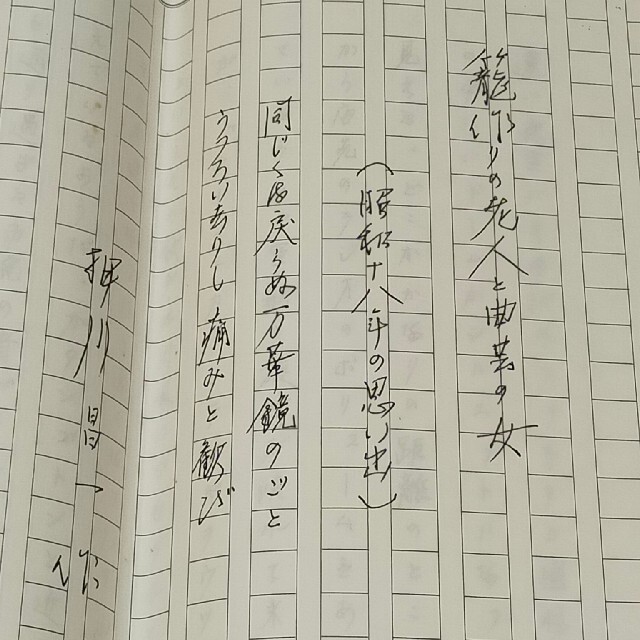 籠作りの老人と曲芸の女
（昭和十八年の思い出）
同じくは戻らぬ万華鏡のごと
うつろい去りし痛みと歓び
押川昌一